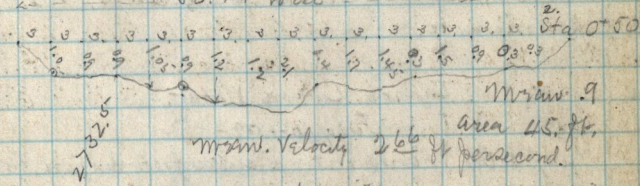 3 3 3 3 3 3 3 3 3 3 3 3 3 2. Sta 0+50
1.0 .9 .9 1.05 .9 1.2 1.2 2.1 1.4 1.7 1.45 .3 1.5 .9 0.3 0.3
Mean .9
area 45. ft.
Mean. Velocity 2 66 ft per second.
2732.5